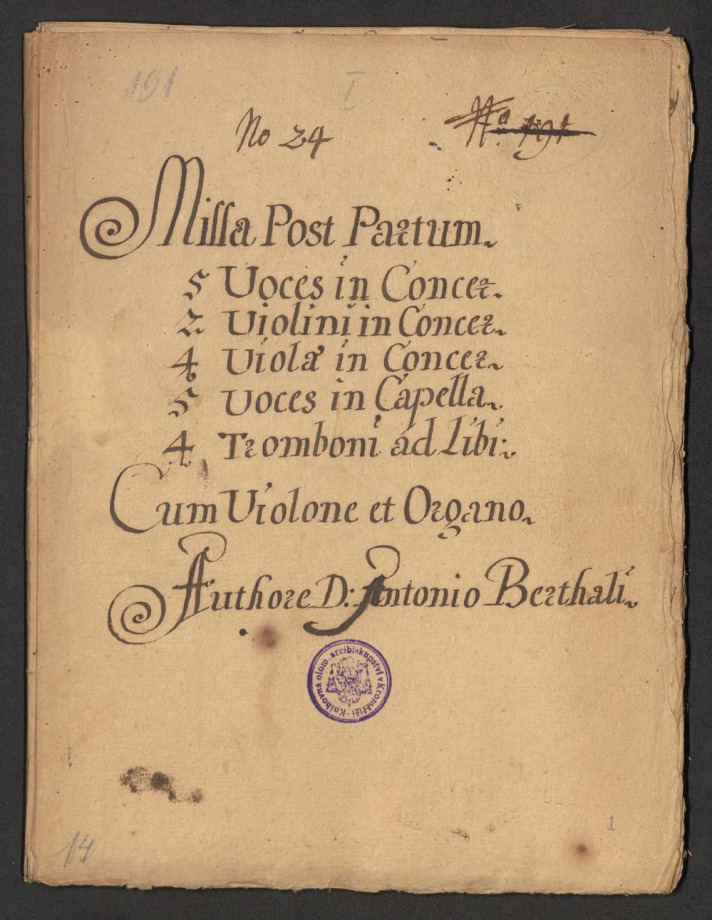 191
I
No 24
Nª. 191
Missa Post Partum.
5 Voces in Concer.
2 Violini in Concer.
4 Violæ in Concer.
5 Voces in Capella.
4 Tromboni ad Libi:.
Cum Violone et Organo.
Authore D: Antonio Berthali.
Knihovna olom. arcibiskupství v Kroměříži
1
14